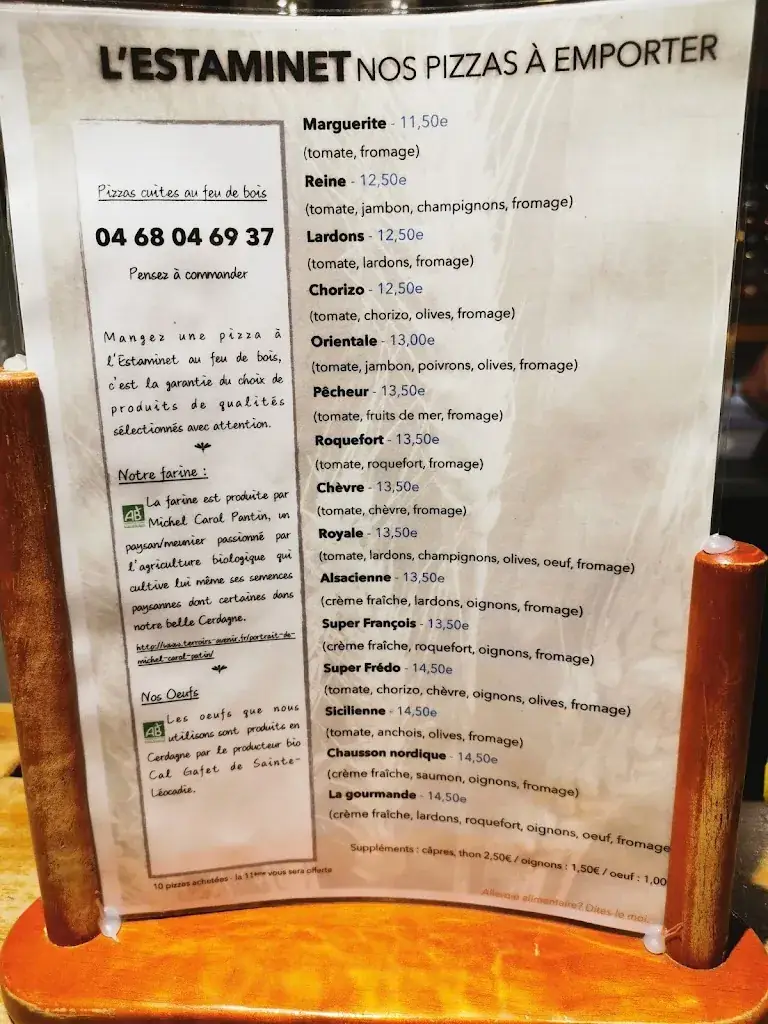 L'ESTAMINET NOS PIZZAS À EMPORTER
Pizzas cuites au feu de bois
04 68 04 69 37
Pensez à commander
Mangez une pizza à
l'Estaminet au feu de bois,
c'est la garantie du choix de
produits de qualités
sélectionnés avec attention.
Notre farine :
AB La farine est produite par
Michel Carol Pantin, un
paysan/meunier passionné par
l'agriculture biologique qui
cultive lui même ses semences
paysannes dont certaines dans
notre belle Cerdagne.
http://www.terroirs-avenir.fr/portrait-de-
michel-carol-patin/
Nos Oeufs
AB Les oeufs que nous
utilisons sont produits en
Cerdagne par le producteur bio
Cal Gafet de Sainte-
Léocadie.
10 pizzas achetées - la 11ème vous sera offerte
Marguerite - 11,50e
(tomate, fromage)
Reine - 12,50e
(tomate, jambon, champignons, fromage)
Lardons - 12,50e
(tomate, lardons, fromage)
Chorizo - 12,50e
(tomate, chorizo, olives, fromage)
Orientale - 13,00e
(tomate, jambon, poivrons, olives, fromage)
Pêcheur - 13,50e
(tomate, fruits de mer, fromage)
Roquefort - 13,50e
(tomate, roquefort, fromage)
Chèvre - 13,50e
(tomate, chèvre, fromage)
Royale - 13,50e
(tomate, lardons, champignons, olives, oeuf, fromage)
Alsacienne - 13,50e
(crème fraîche, lardons, oignons, fromage)
Super François - 13,50e
(crème fraîche, roquefort, oignons, fromage)
Super Frédo - 14,50e
(tomate, chorizo, chèvre, oignons, olives, fromage)
Sicilienne - 14,50e
(tomate, anchois, olives, fromage)
Chausson nordique - 14,50e
(crème fraîche, saumon, oignons, fromage)
La gourmande - 14,50e
(crème fraîche, lardons, roquefort, oignons, oeuf, fromage
Suppléments : câpres, thon 2,50€ / oignons : 1,50€ / oeuf : 1,00
Allergie alimentaire? Dites-le moi.